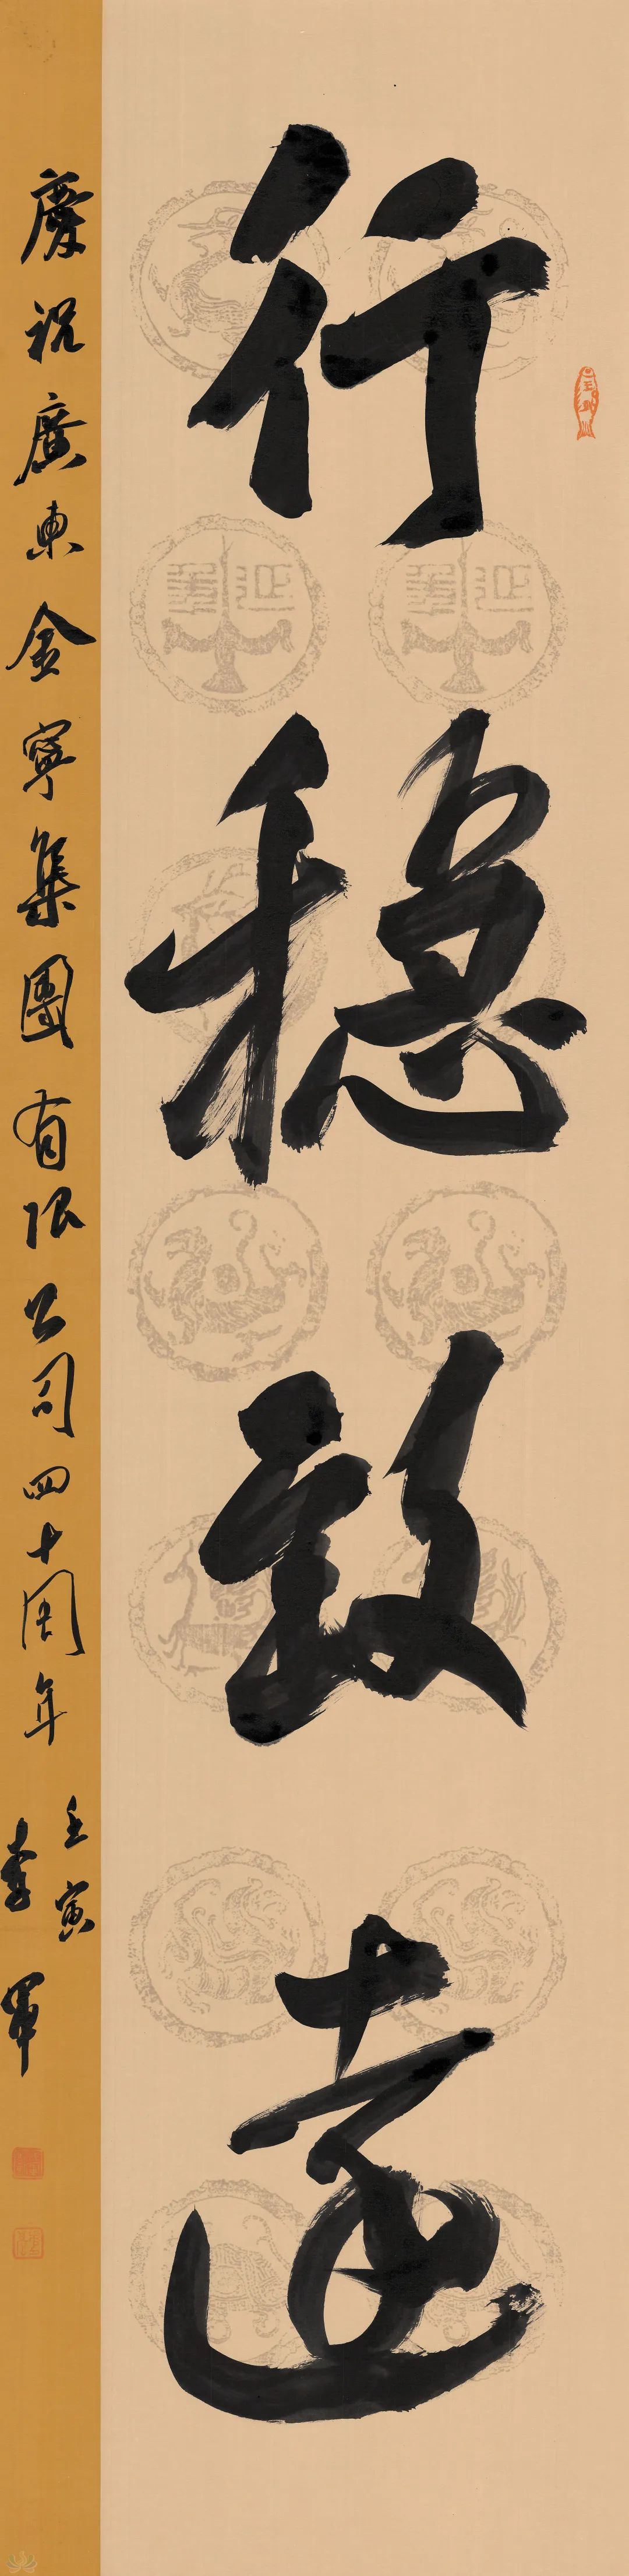 行稳致远
慶祝廣東金寧集團有限公司四十周年
壬寅